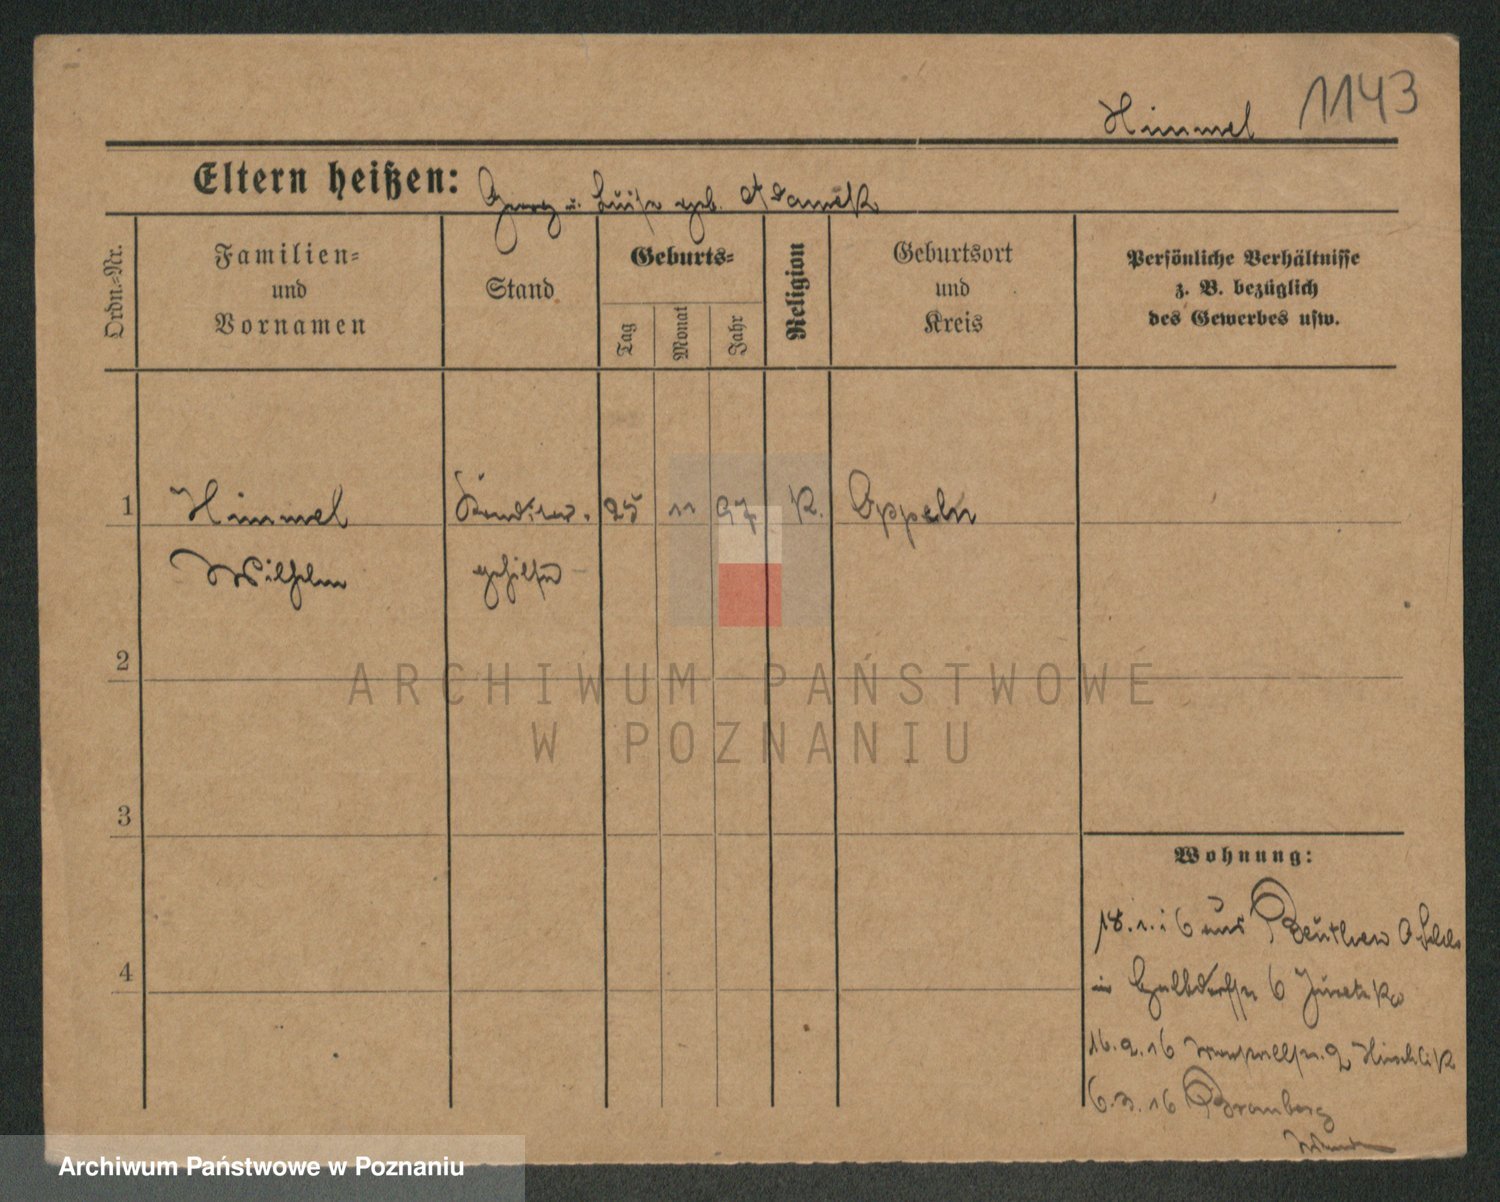 1143
Himmel
Eltern heißen: Georg u. Luise geb. Adamek
Ordn.-Nr.
Familien-
und
Vornamen
Stand
Geburts-
Tag
Monat
Jahr
Religion
Geburtsort
und
Kreis
Persönliche Verhältnisse
z. B. bezüglich
des Gewerbes usw.
1 Himmel 25 11 97 K. Oppeln
Wilhelm gehilfe
2
ARCHIWUM PAŃSTWOWE
W POZNANIU
3
4
Wohnung:
18.1.16 aus Beuthen O Schls
in 6
16.2.16
6.3.16 Bromberg
Archiwum Państwowe w Poznaniu